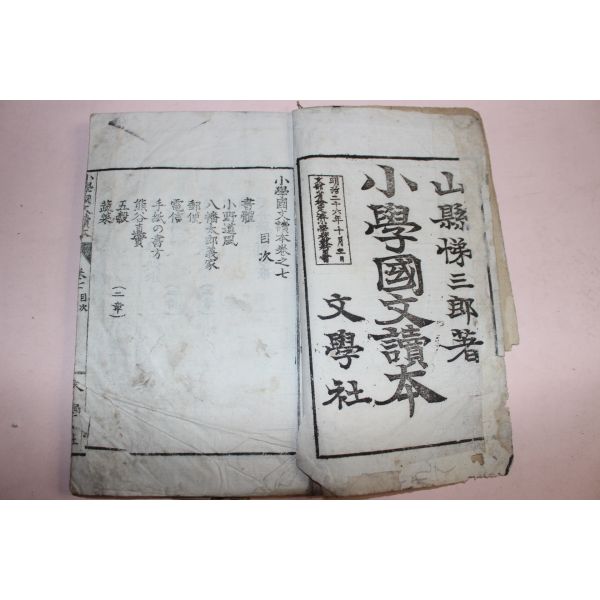 山縣悌三郎著
小學國文讀本
文學社
明治二十六年十月二日
小學國文讀本卷之七
目次
書體
小野道風
八幡太郎義家
郵便
電信
手紙の書方
熊谷直實
五穀 (二章)
蔬菜
小學國文讀本
卷七 目次
文學社